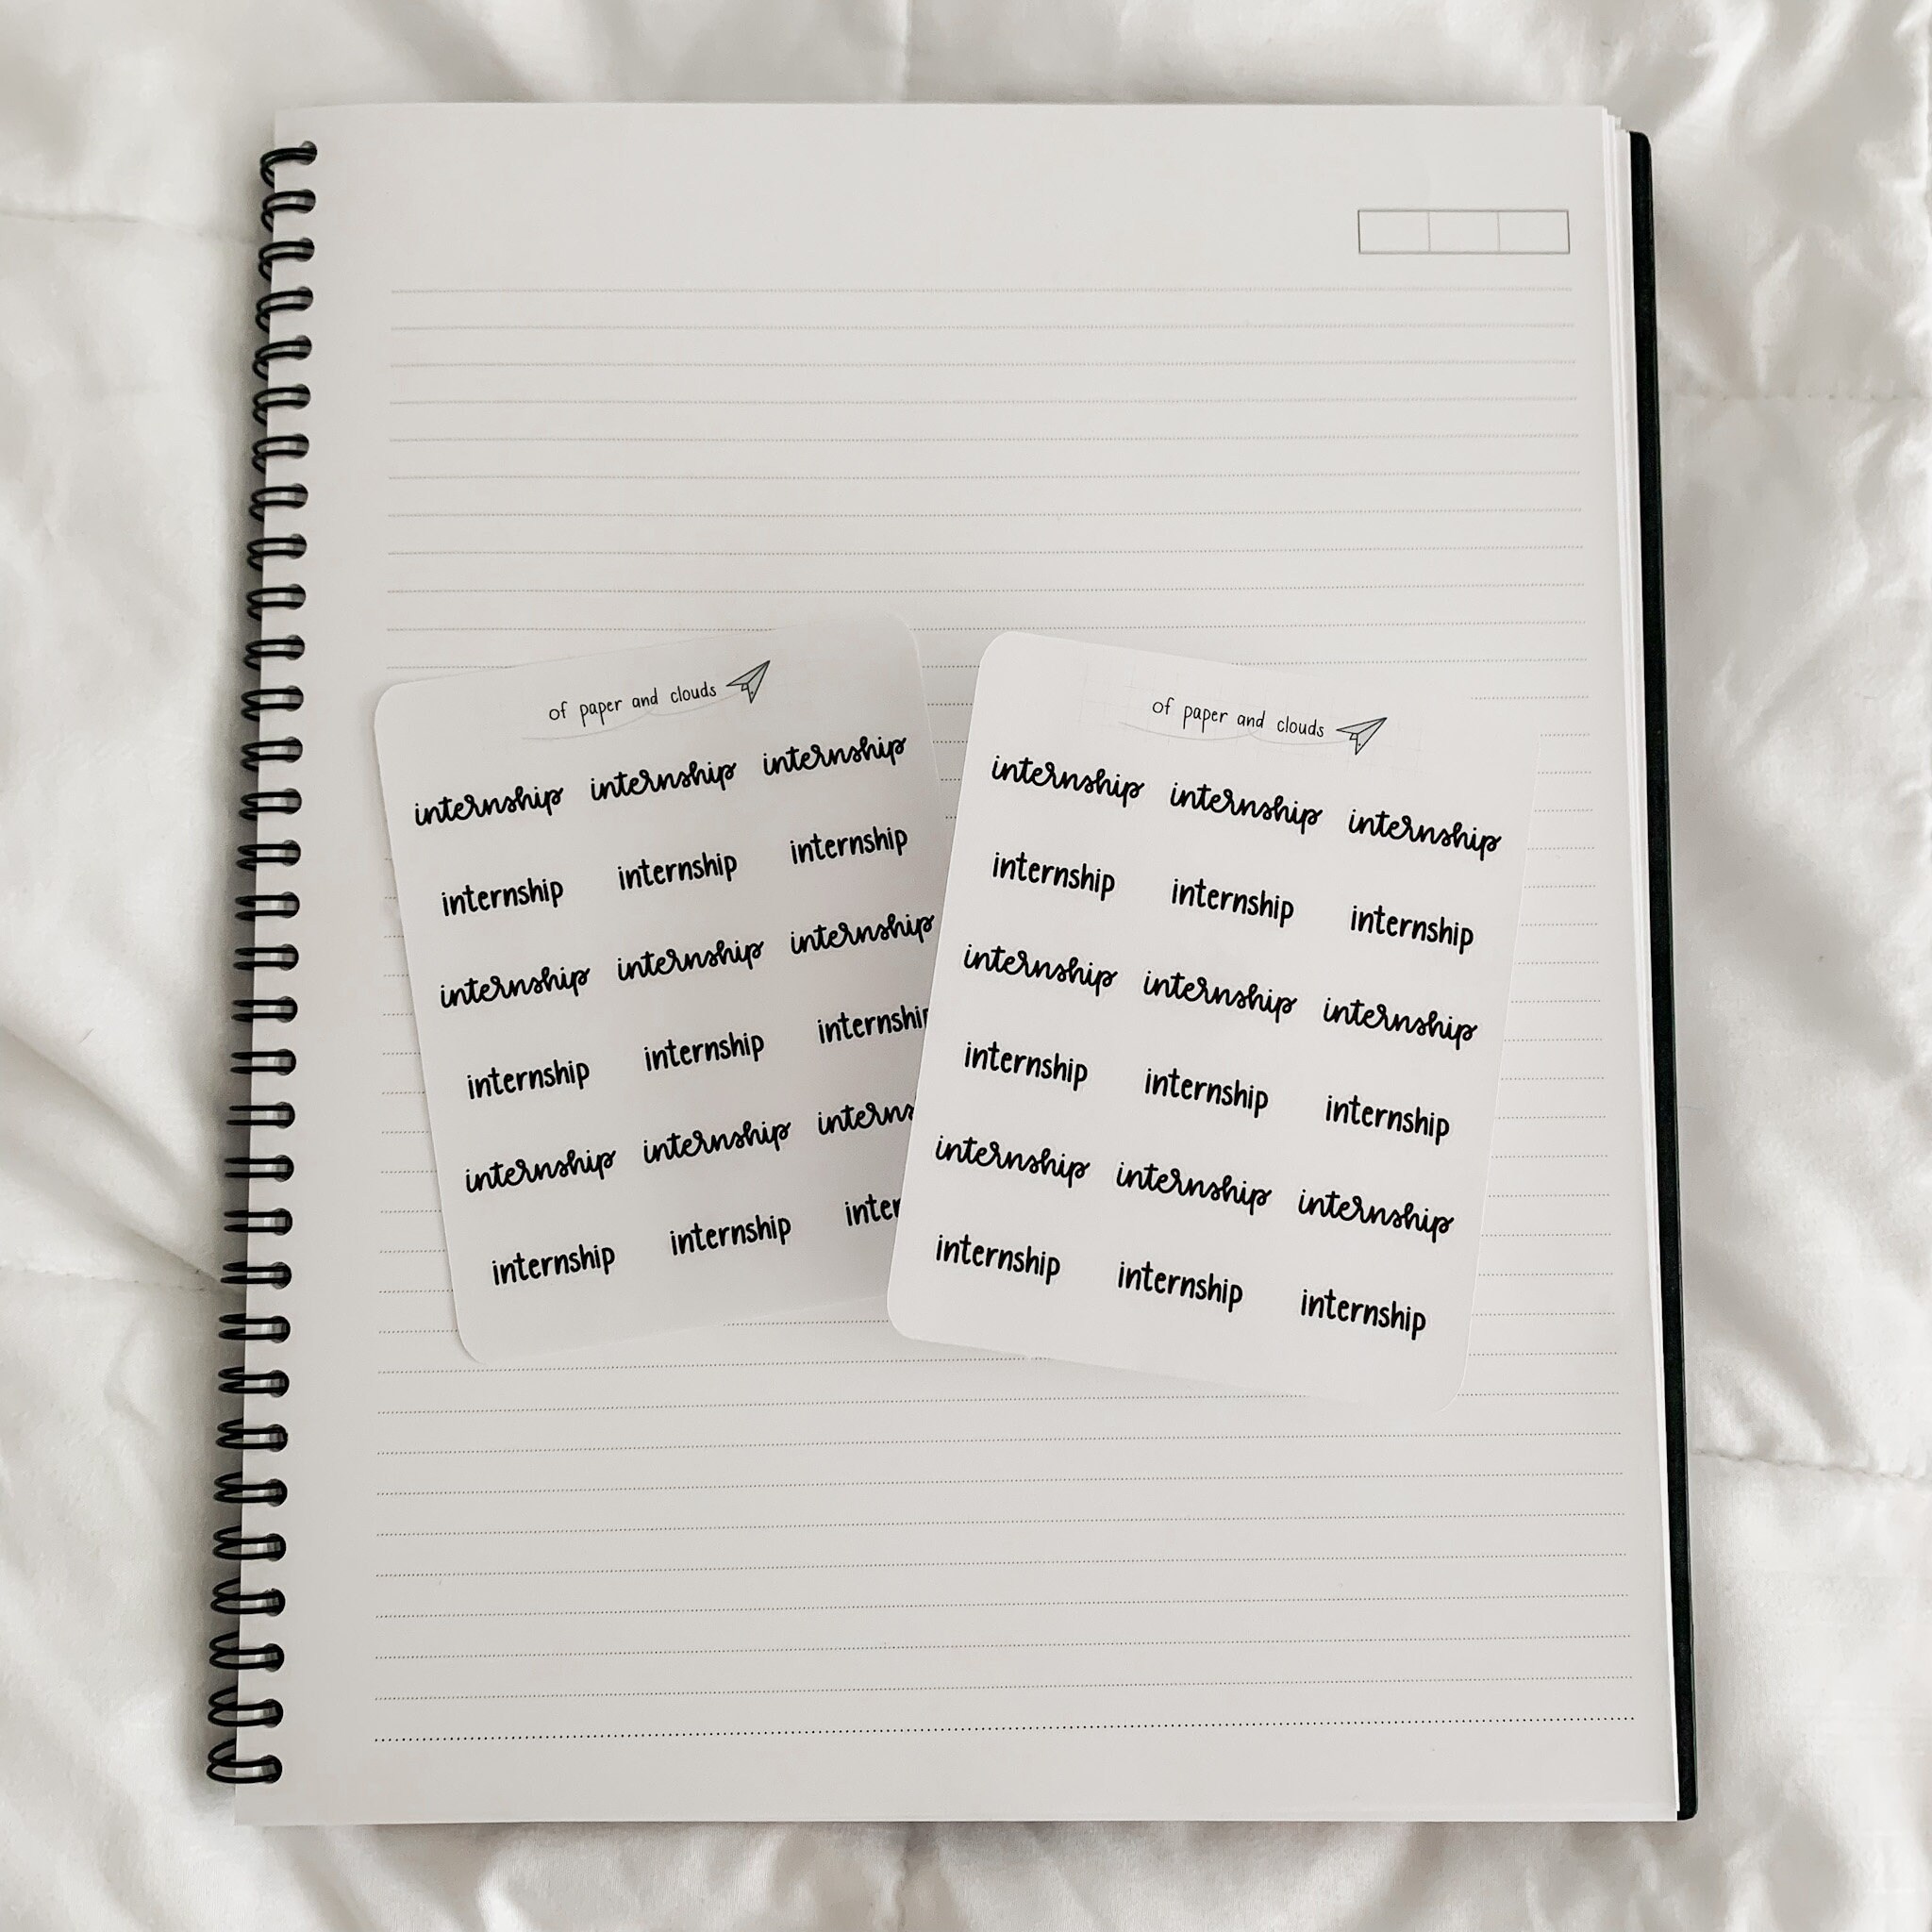 of paper and clouds
internship internship internship
internship internship internship
internship internship internship
internship internship internship
internship internship interns
internship internship inter
of paper and clouds
internship internship internship
internship internship internship
internship internship internship
internship internship internship
internship internship internship
internship internship internship